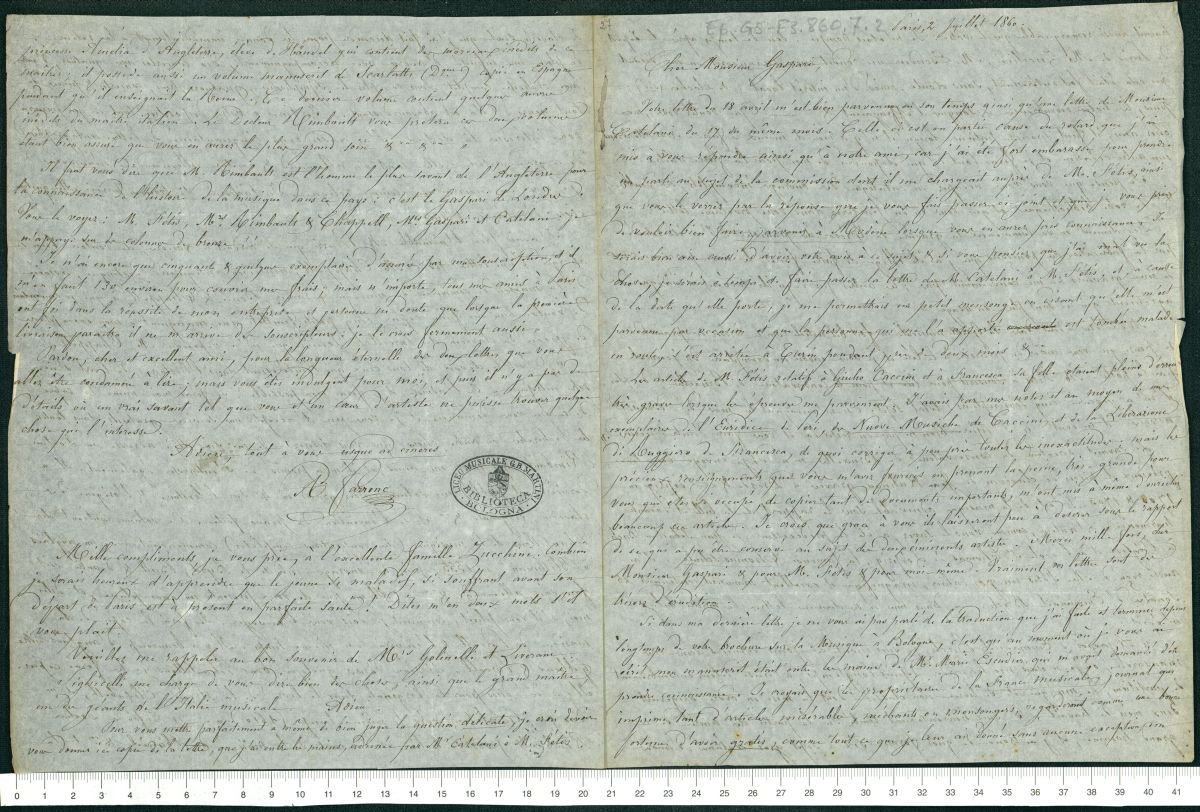 princesse Amélia d'Angleterre, élève de Haendel qui contient des morceaux inédits de ce
maître; il possède aussi un volume manuscrit de Scarlatti (Dque) copié en Espagne
pendant qu'il enseignait la Reine. Ce dernier volume contient quelques œuvres
inédites du maître italien. Le Docteur Rimbault vous prêtera ces deux volumes
étant bien assuré que vous en aurez le plus grand soin &ca &ca
Il faut vous dire que M. Rimbault est l'homme le plus savant de l'Angleterre pour
la connaissance de l'histoire de la musique dans ce pays; c'est le Gaspari de Londres.
Vous le voyez, M. Fétis, Mrs Rimbault & Chappell, Mrs Gaspari et Catelani: je
m'appuye sur des colonnes de bronze!!
Je n'ai encore que cinquante & quelques exemplaires d'assurés par ma souscription, et il
m'en faut 130 environ pour couvrir mes frais; mais n'importe, tous mes amis à Paris
ont foi dans la réussite de mon entreprise et personne ne doute que lorsque la première
livraison paraîtra il ne m'arrive des souscripteurs; je le crois fermement aussi.
Pardon, cher et excellent ami, pour la longueur éternelle des deux lettres que vous
allez être condamné à lire; mais vous êtes indulgent pour moi, et puis il n'y a pas de
détails où un vrai savant tel que vous et un cœur d'artiste ne puisse trouver quelque
chose qui l'intéresse.
Adieu, tout à vous usque ad cineres
A. Farrenc
LICEO MUSICALE G.B. MARTINI
BIBLIOTECA
BOLOGNA
Mille compliments, je vous prie, à l'excellente famille Zucchini. Combien
je serais heureux d'apprendre que le jeune si maladif, si souffrant avant son
départ de Paris, est à présent en parfaite santé! Dites m'en deux mots s'il
vous plait.
Veuillez me rappeler au bon souvenir de Mrs Golinelli &
me charge de vous dire bien des choses, ainsi que le grand maître
un des géants de l'Italie musicale. Adieu
Pour vous mettre parfaitement à même de bien juger la question délicate, je crois devoir
vous donner ici copie de la lettre, que j'ai entre les mains, adressée par Mr Catelani à M. Fétis
27
F3.860.7.2
Paris, 2 Juillet 1860.
Cher Monsieur Gaspari,
Votre lettre du 18 avril m'est bien parvenue en son temps ainsi qu'une lettre de Monsieur
Catelani, du 17 du même mois. Celle-ci est en partie cause du retard que j'ai
mis à vous répondre ainsi qu'à notre ami, car j'ai été fort embarassé pour prendre
un parti au sujet de la commission dont il me chargeait auprès de M. Fétis, ainsi
que vous le verrez par la réponse que je vous fais passer ci-joint et que je vous prie
de vouloir bien faire parvenir à Modène lorsque vous en aurez pris connaissance. Je
serais bien aise aussi d'avoir votre avis à ce sujet, & si vous pensez que j'ai mal vu la
chose, je serais à temps de faire passer la lettre de M. Catelani à M. Fétis, et à cause
de la date qu'elle porte, je me permettrais un petit mensonge en disant qu'elle m'est
parvenue par occasion et que la personne qui me l'a apportée est tombée malade
en route, s'est arrêtée à Turin pendant près de deux mois &.
Les articles de M. Fétis relatifs à Giulio Caccini et à Francesca sa fille étaient pleins d'erreurs
très graves lorsque les épreuves me parvinrent. J'avais par mes notes et au moyen de mes
exemplaires de l'Euridice de Peri, des Nuove Musiche de Caccini, et de la Liberazione
di Ruggiero de Francesca, de quoi corriger à peu près toutes les inexactitudes; mais les
précieux renseignements que vous m'avez fournis en prenant la peine, très grande pour
vous qui êtes si occupé, de copier tant de documents importants, m'ont mis à même d'enrichir
beaucoup ces articles. Je crois que grâce à vous ils laisseront peu à désirer sous le rapport
de ce qui a pu être conservé au sujet de ces éminents artistes. Merci mille fois, cher
Monsieur Gaspari & pour M. Fétis & pour moi-même. Vraiment vos lettres sont des
trésors d'érudition.
Si dans ma dernière lettre je ne vous ai pas parlé de la traduction que j'ai faite et terminée depuis
longtemps de votre brochure sur la Musique à Bologne, c'est qu'au moment où je vous ai
écrit, mon manuscrit était entre les mains de Mr Marie Escudier, qui m'avait demandé d'en
prendre connaissance. Je croyais que les propriétaires de la France musicale, journal qui
imprime tant d'articles misérables, méchants ou mensongers, regarderaient comme une bonne
fortune d'avoir gratis, comme tout ce que je leur ai donné sans aucune exception, un